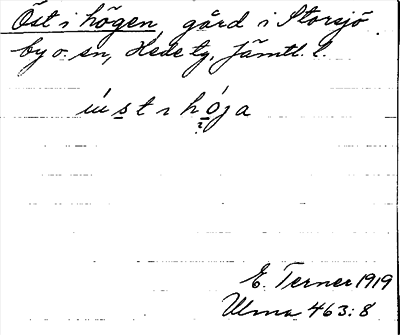 Öst i högen, gård i Storsjö
by o. sn, Hede tg, Jämtl. l.
s t ı h ó j a
E. Terner 1919
Ulma 463:8